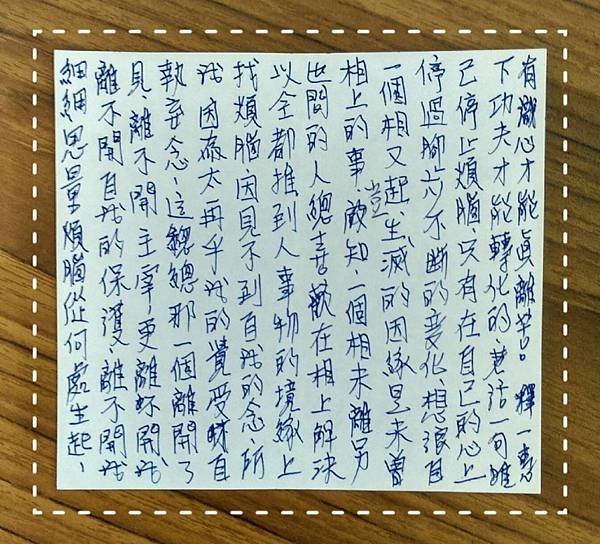 細細思量煩腦從何處生起、
離不開自我的保護、離不開我
見、離不開主宰、更離不開我
執妄念、這總總那一個離開了
我因為太再乎我的覺受眛自
找煩腦因見不到自我的念、所
以全都推到人事物的境緣上
世間的人總喜歡在相上解決
相上的事、豈知、一個相未離另
一個相又起、生滅的因緣是未曾
停過腳步不斷的變化、想讓自
己停止煩腦只有在自己的心上
下功夫才能轉化的、老話一句唯
有識心才能真離苦。 釋一